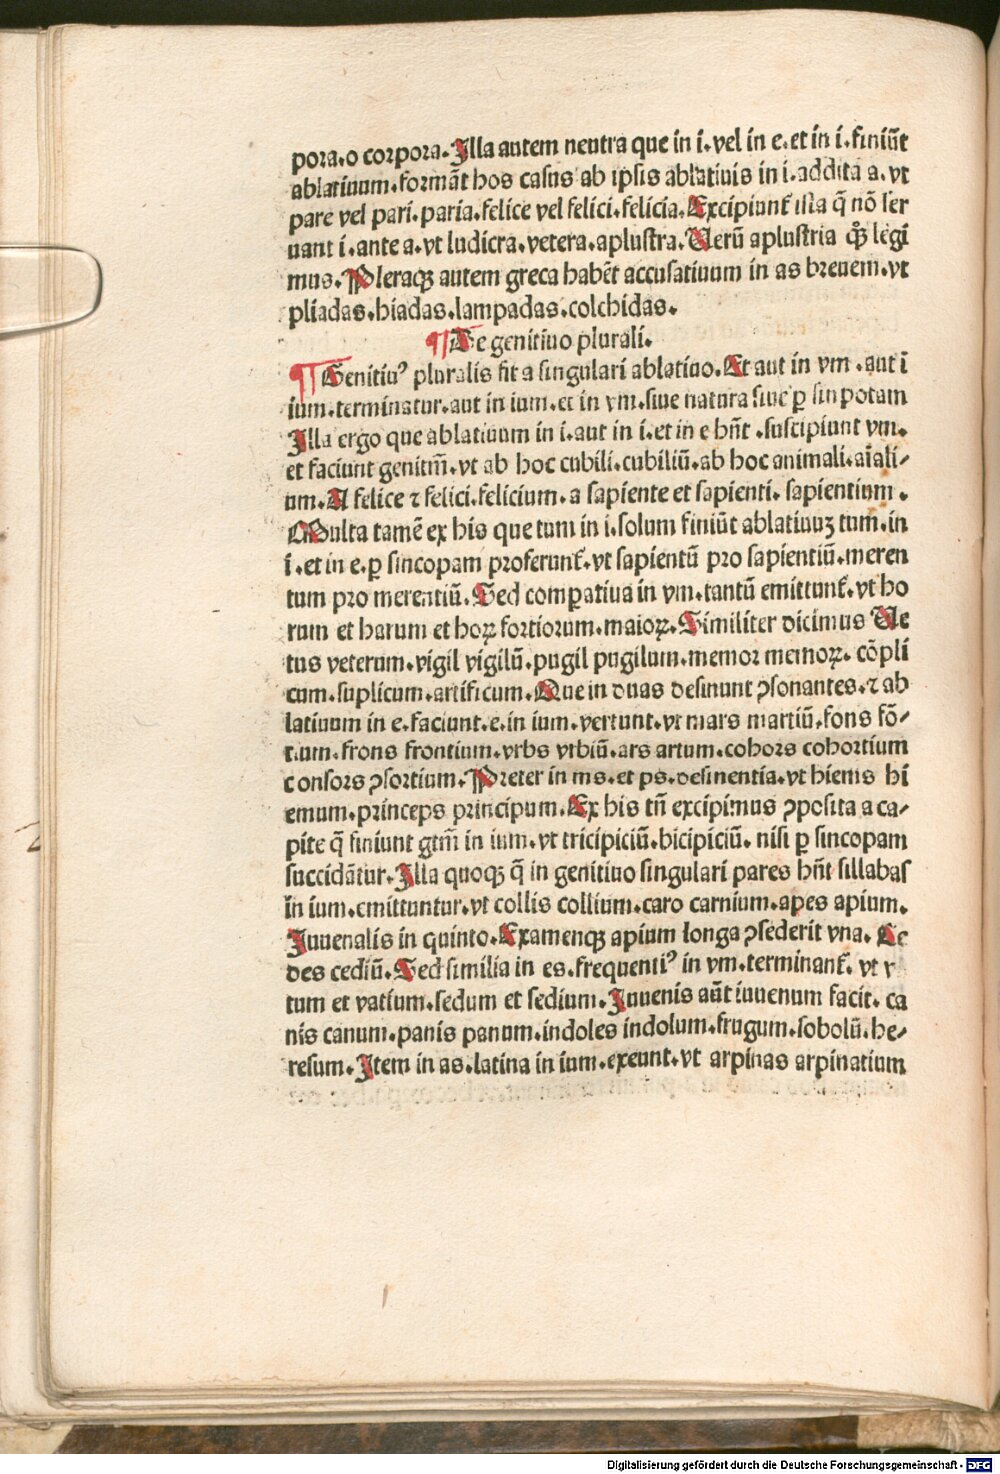 pora.o corpora.Illa autem neutra que in i.vel in e.et in i.finiūt
ablatiuum.formāt hos casus ab ipsis ablatiuis in i.addita a.vt
pare vel pari.paria.felice vel felici.felicia.Excipiunt᷑ ista q̄ nō ser
uant i.ante a.vt ludicra.vetera.aplustra.Uerū aplustria qꝫ legi
mus.Pleraqꝫ autem greca habēt accusatiuum in as breuem.vt
pliadas.hiadas.lampadas.colchidas.
¶De genitiuo plurali.
¶Genitiuꝰ pluralis fit a singulari ablatiuo.Et aut in vm.aut ī
ium.terminatur.aut in ium.et in vm.siue natura siue ꝑ sinpotam
Illa ergo que ablatiuum in i.aut in i.et in e hn̄t.suscipiunt vm.
et faciunt genitm̄.vt ab hoc cubili.cubiliū.ab hoc animali.aīali⸗
um.A felice ⁊ felici.felicium.a sapiente et sapienti.sapientium.
Multa tamē ex his que tum in i.solum finiūt ablatiuuꝫ tum.in
i.et in e.ꝑ sincopam proferunt᷑.vt sapientū pro sapientiū.meren
tum pro merentiū.Sed comꝑatiua in vm.tantū emittunt᷑.vt ho
rum et harum et hoꝝ fortiorum.maioꝝ.Similiter dicimus Ue
tus veterum.vigil vigilū.pugil pugilum.memor memoꝝ.cōpli
cum.suplicum.artificum.Que in duas desinunt ꝯsonantes.⁊ ab
latiuum in e.faciunt.e.in ium.vertunt.vt mars martiū.fons fō⸗
tium.frons frontium.vrbs vrbiū.ars artum.cohors cohortium
consors ꝯsortium.Preter in ms.et ps.desinentia.vt hiems hi
emum.princeps principum.Ex his tn̄ excipimus ꝯposita a ca⸗
pite q̄ finiunt gtm̄ in ium.vt tricipiciū.bicipiciū.nisi ꝑ sincopam
succidātur.Illa quoqꝫ q̄ in genitiuo singulari pares hn̄t sillabas
in ium.emittuntur.vt collis collium.caro carnium.apes apium.
Iuuenalis in quinto.Examenqꝫ apium longa ꝯsederit vna.Ce
des cediū.Sed similia in es.frequentiꝰ in vm.terminant᷑.vt v
tum et vatium.sedum et sedium.Iuuenis aūt iuuenum facit.ca
nis canum.panis panum.indoles indolum.frugum.sobolū.he⸗
resum.Item in as.latina in ium.exeunt.vt arpinas arpinatium
Digitalisierung gefördert durch die Deutsche Forschungsgemeinschaft - DFG